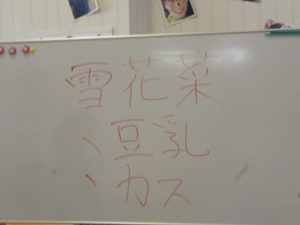 雪花菜
、豆乳
、カス